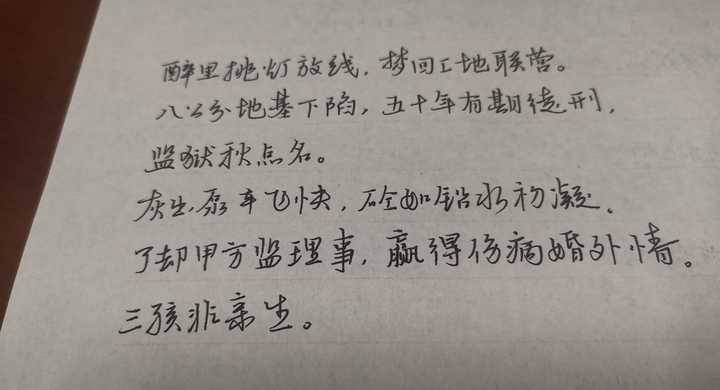 醉里挑灯放线，梦回工地联营。
八公分地基下陷，五十年有期徒刑，
监狱秋点名。
灰尘泵车飞快，砼如铅水初凝。
了却甲方监理事，赢得伤病婚外情。
三孩非亲生。